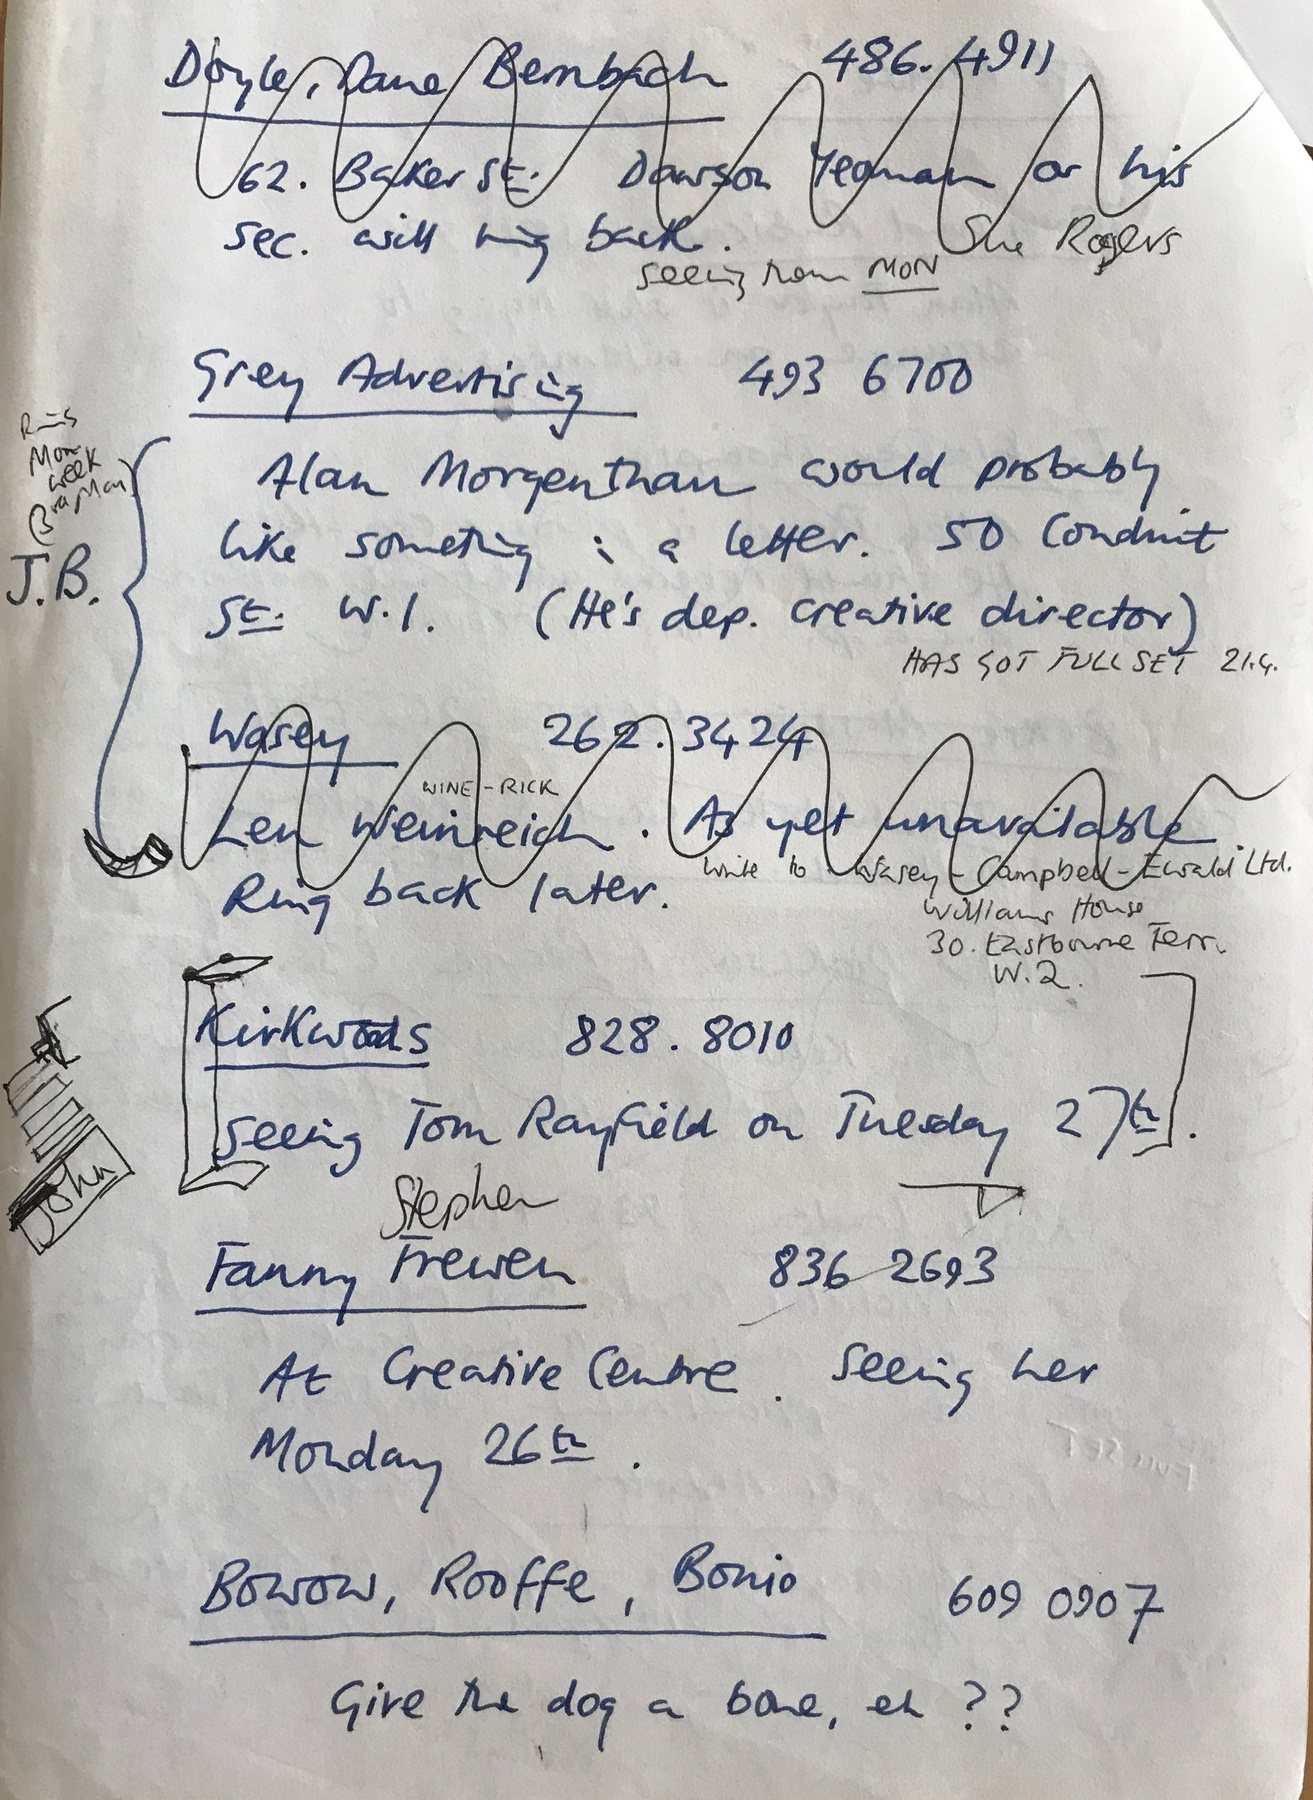 Doyle, Dane Bernbach 486. 4911
62. Baker St. Dawson Yeoman or his
sec. will ring back. Sue Rogers
seeing him MON
Grey Advertising 493 6700
Ring
Mon
week
Alan Morgenthau would probably
like something in a letter. 50 Conduit
J.B.
St. W.1. (He's dep. creative director)
HAS GOT FULL SET 21.4.
Wasey 262. 3424
WINE-RICK
Len Weinreich. As yet unavailable.
write to Wasey-Campbell-Ewald Ltd.
Ring back later.
Williams House
30. Eastbourne Terr.
W.2.
Kirkwoods 828. 8010
Seeing Tom Rayfield on Tuesday 27th.
John
Stephen
Fanny Frewen 836 2693
At Creative Centre. Seeing her
Monday 26th.
Bowow, Rooffe, Bonio 609 0907
Give the dog a bone, eh ??